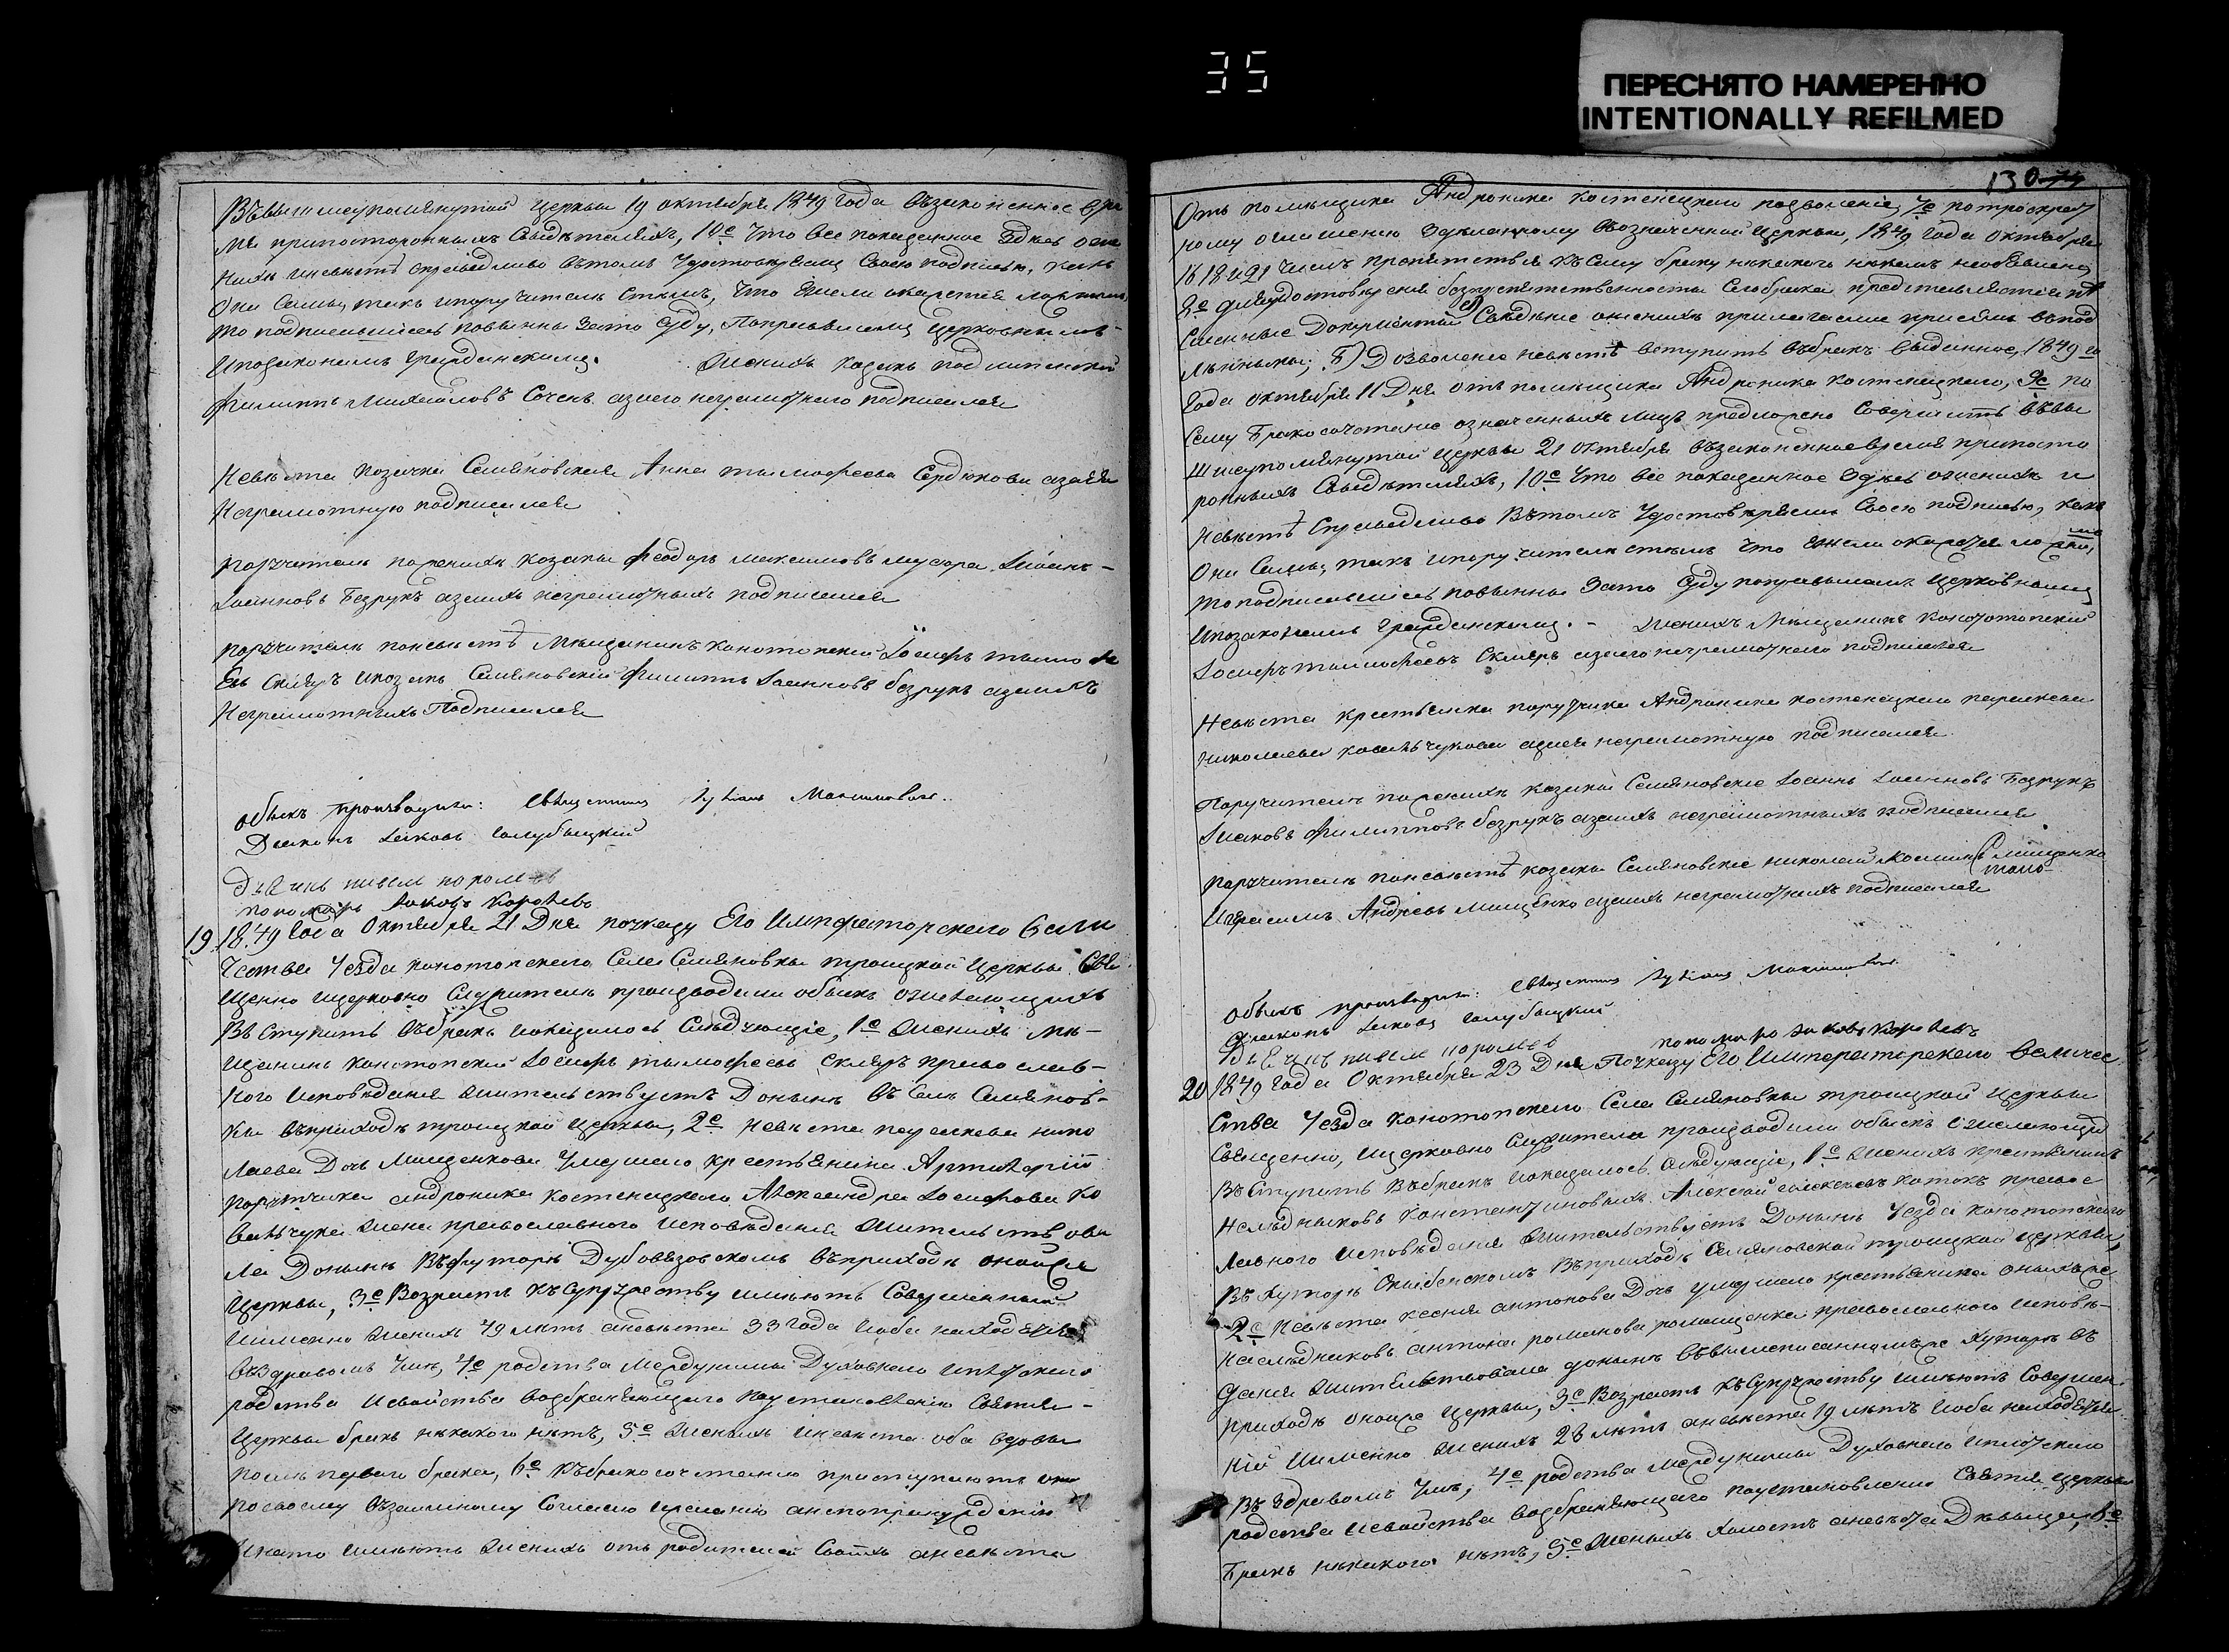 35
ПЕРЕСНЯТО НАМЕРЕННО
INTENTIONALLY REFILMED
130
Въвышеупомянутой Церкви 19 октября 1849 года възаконенное вре
мя припостороннихъ Свидетеляхъ, 10е Что все показанное Здесь оже
нихе иневестѣ справедливо вътомъ Удостоверяемъ Своею подписью, какъ
Они Сами, такъ ипоручители Стымъ, что Ежели окажется
то подписавшиесь повинны Зато Суду, Поправиламъ Церковнымъ
Ипозаконамъ Гражданскимъ. Женихъ козакъ
Филиппъ Михайловъ Сочень азаего неграмотнаго подписался
Невеста козачка Семяновская Анна тимофеева Сердюкова азанея
Неграмотную подписался
поручители пожениху козаки феодоръ максимовъ мусора Іоаннъ
Іоанновъ Безрукъ азаихъ неграмотныхъ подписался
поручители поневестѣ Мещанинъ конотопский Іосифъ тимофе
Евъ Скляръ икозакъ Семяновский филиппъ Іоанновъ безрукъ азаихъ
Неграмотныхъ Подписался
обыскъ производили: священникъ Лукианъ Максимовичъ
Диаконъ Іаковъ Голубицкий
пономарь Іаковъ Королевъ
19 1849 года Октября 21 Дня поуказу Его Императорскаго Вели
Чества Уезда конотопскаго Села Семяновки троицкой Церкви Свя
щенно ицерковно Служители производили обыскъ ожелающихъ
ВъСтупить въбракъ иоказалось Следующіе, 1е Женихъ ме-
щанинъ конотопский Іосифъ тимофеевъ Скляръ православ-
наго исповедания жительствуетъ Доныне въ Селе Семянов-
ки въприходе троицкой Церкви, 2е Невеста параскева нико
лаева Дочь Мищенкова Умершаго крестьянина
поручика андроника костенецкаго Александра Іосифова Ко
вальчука жена православнаго исповедания жительствова
ла Доныне Въхуторе Дубовязовскомъ въприходе онойже
Церкви, 3е Возрастъ къСупружеству имеютъ Совершенный
иименно женихъ 49 летъ аневеста 33 года иоба находятся
въздравомъ Уме, 4е родства Междуними Духовнаго иплотскаго
родства исвойства возбраняющаго поустановлению Святыя
Церкви бракъ некакого нетъ, 5е женихъ иневеста оба вдовы
после перваго брака, 6е Къбракосочетанию приступаютъ они
посвоему взаимному Согласию ижеланию анепопринуждению
инато имеютъ женихъ отъ родителей Своихъ аневеста
Отъ помещика Андроника костенецкаго позволение, 7е потроекрат
ному оглашению зделанному Вознаменной церкви, 1849 года октября
16 18 и 21 Чиселъ препятствия къСему браку некакого никемъ необъявлено
8е дляудостоверения безпрепятственности Сегобрака представляются пи
Сменные Документы а) Сведение оженихе прилагаемое присемъ вподъ
линныкъ; Б) Дозволение невестѣ вступить въбракъ выданное, 1849 го
Года октября 11 Дня отъ помещика Андроника костенецкаго, 9е по
Сему Бракосочетание означенныхъ лицъ предположено Совершить въвы
Шеупомянутой церкви 21 октября възаконенноевремя припосто
роннихъ Свидетеляхъ, 10е Что все показанное Здесь оженихе и
Невестѣ Справедливо Вътомъ Удостоверяемъ Своею подписью, какъ
Они Сами, такъ ипоручители стымъ что Ежели окажется ложно,
топодписавшиесь повинны Зато Суду поправиламъ Церковнымъ
Ипозаконамъ Гражданскимъ. - Женихъ Мещанинъ Конотопский
Іосифъ тимофеевъ Скляръ азаего неграмотнаго подписался
Невеста крестьянка поручика Андроника костенецкаго параскева
николаева ковальчукова азанея неграмотную подписался
Поручители пожениху козаки Семяновские Іоаннъ Іоанновъ Безрукъ
Іаковъ Филипповъ безрукъ азаихъ неграмотныхъ подписался
поручители поневестѣ козаки Семяновские николай Мищенко
Игерасимъ Андреевъ Мищенко азаихъ неграмотныхъ подписался
обыскъ производили: священникъ Лукианъ Максимовичъ
Диаконъ Іаковъ Голубицкий
пономарь Іаковъ Королевъ
20 1849 года Октября 23 Дня Поуказу Его Императорскаго Величе
Ства Уезда Конотопскаго Села Семяновки троицкой Церкви
Священно, ицерковно Служители производили обыскъ ожелающихъ
ВъСтупить Въбракъ иоказалось Следующіе, 1е женихъ крестьянинъ
Наследниковъ константиновыхъ Алексей алексеевъ Котокъ правос
лавнаго исповедания Жительствуетъ Доныне Уезда конотопскаго
Въ Хуторе Въприходе Семяновской троицкой церкви,
2е Невеста ксения антонова Дочь умершаго крестьянина оныхъже
наследниковъ антона романова ромащенка православнаго исповѣ-
дания жительствовала доныне въвышеписанномъже хуторе въ
приходе онойже Церкви, 3е Возрастъ къСупружеству имеютъ Совершен
ний иименно женихъ 28 летъ аневеста 19 летъ иоба находятся
Въ здравомъ Уме, 4е родства междуними Духовнаго иплотскаго
родства исвойства возбраняющаго поустановлению Святыя церкви
Бракъ никакого нетъ, 5е Женихъ Холостъ аневеста Девица, 6е